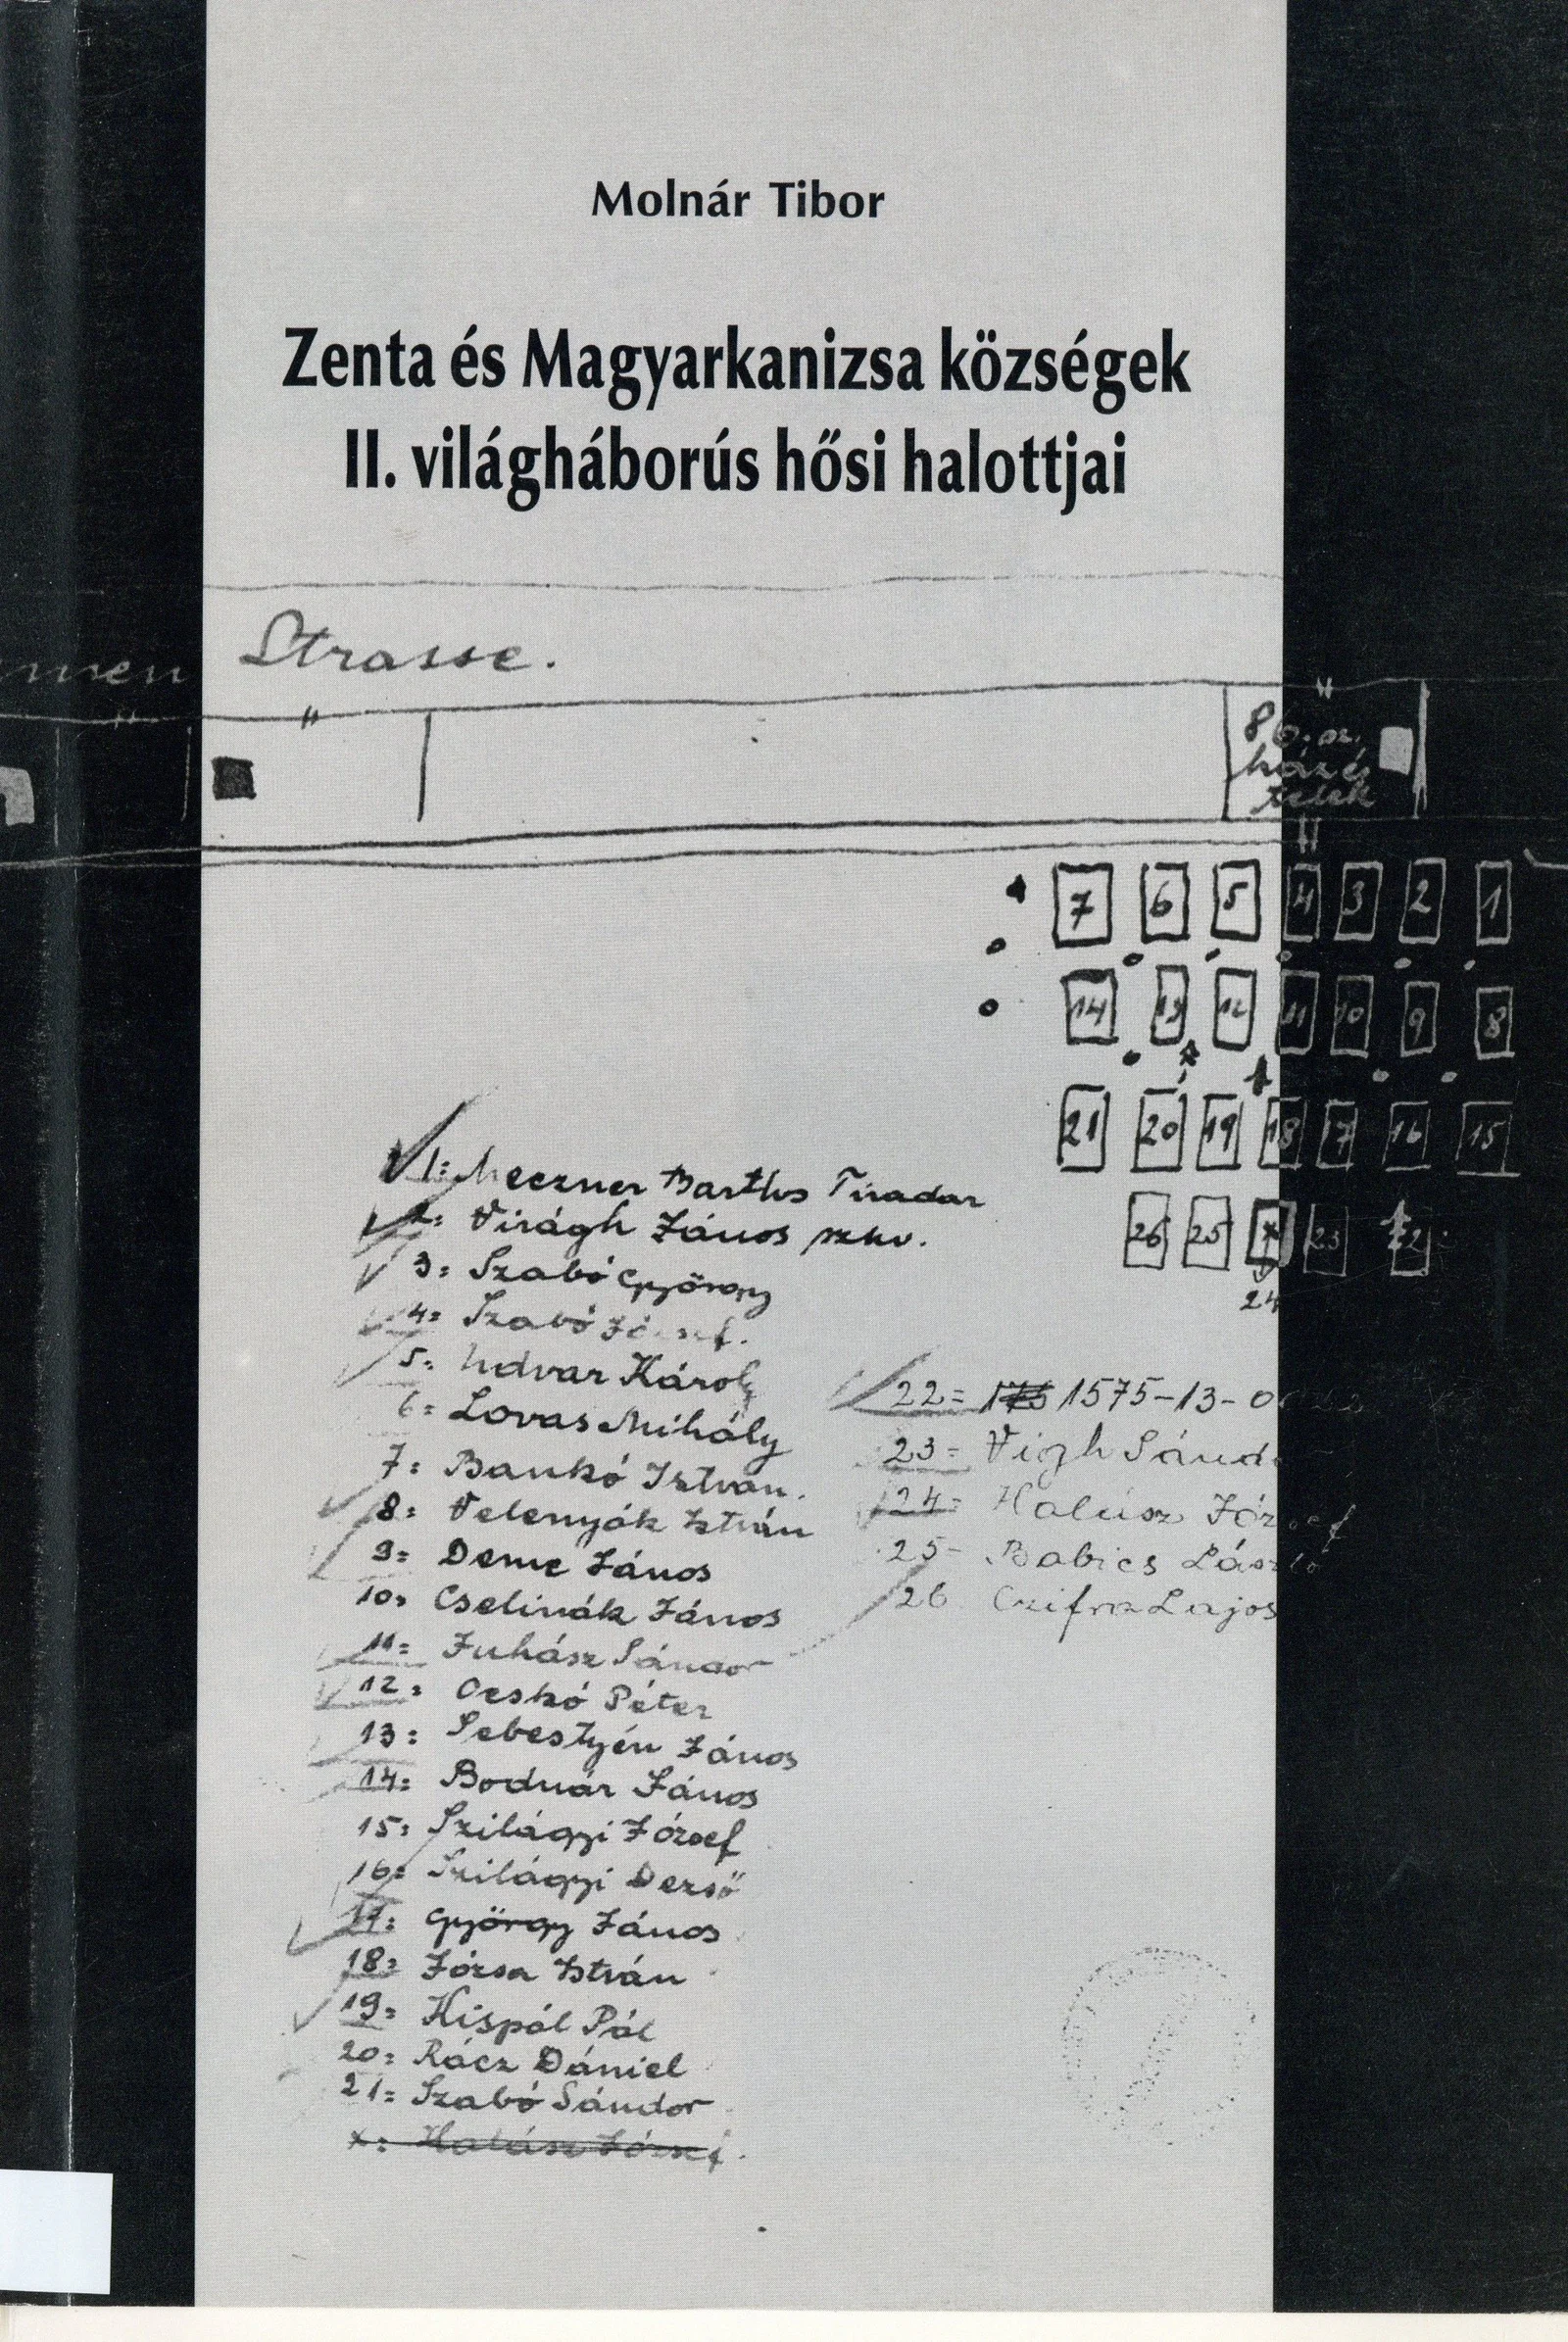 Molnár Tibor
Zenta és Magyarkanizsa községek
II. világháborús hősi halottjai
Strasse.
86. sz.
ház és
telek
7 6 5 4 3 2 1
14 13 12 11 10 9 8
21 20 19 18 17 16 15
26 25 x 23 22
24
1= Meczner Barthos Tivadar
2= Virágh János szkv.
3= Szabó György
4= Szabó József.
5= Udvar Károly
6= Lovas Mihály
7= Bankó István.
8= Velenyák István
9= Deme János
10= Cselinák János
11= Juhász Sándor
12= Ocskó Péter
13= Sebestyén János
14= Bodnár János
15= Szilágyi József
16= Szilágyi Dezső
17= György János
18= Józsa István
19= Kispál Pál
20= Rácz Dániel
21= Szabó Sándor
x= Halász József.
22= 1575-13-
23= Vigh
24= Halász József
25- Babics László
26 Czifra Lajos